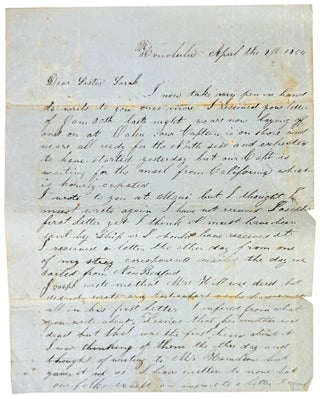 Honolulu April the 9th 1854
Dear Sister Sarah
I now take my pen in hand
to write to you once more I received your letter
of Jan 25th last night we are now laying of
and on at Oahu Our Captain is on shore and
we are all ready for the North seas and expected
to have started yesterday but our Capt is
waiting for the mail from California which
is hourly expected
I wrote to you at Maui but I thought I
must write again I have not received Josephs
first letter yet I think it must have been
sent by Ship or I should have received it
I received a letter the other day from one
of my stray correspondents mailed the day we
sailed from New Bedford
Joseph wrote me that Mrs Hill was dead but
all in his first letter I infered from what
you wrote about mother was
dead but that was the first I knew about it
I was thinking of them the other day and
thought of writing to Mr but
gave it up as I have written to none but
our folks except an answer to a letter I